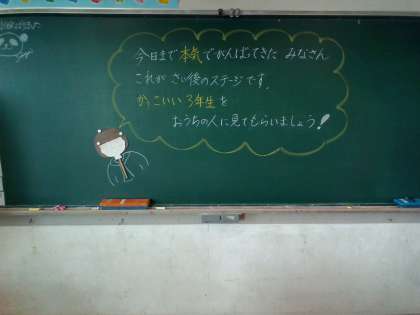 今日まで本気でがんばってきた みなさん
これが さい後のステージです。
かっこいい3年生を
おうちの人に見てもらいましょう!